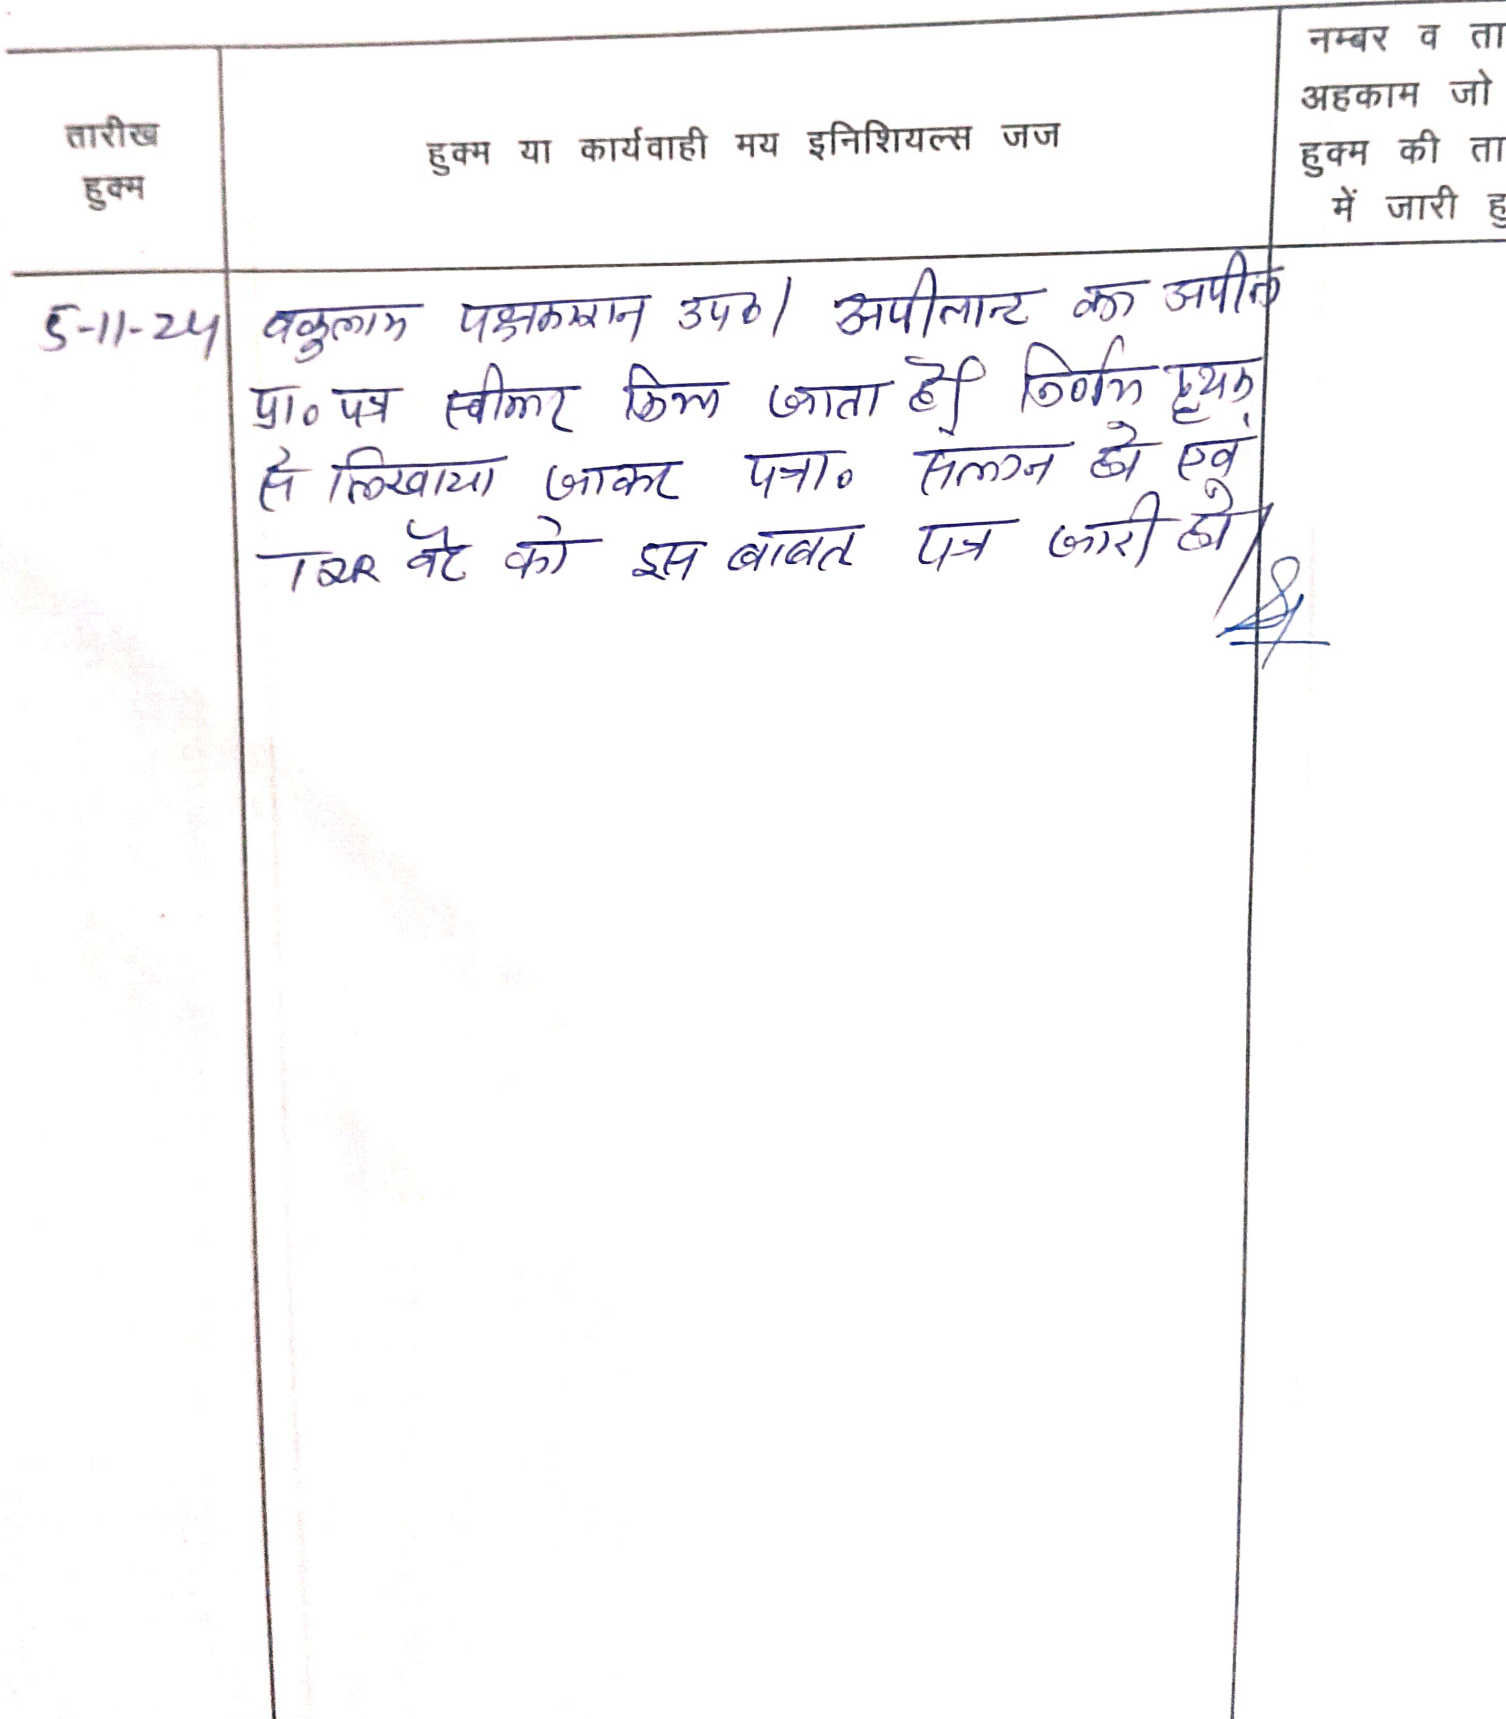 तारीख
हुक्म
हुक्म या कार्यवाही मय इनिशियल्स जज
नम्बर व ता
अहकाम जो
हुक्म की ता
में जारी हु
5-11-24
वकुलाय पक्षकारान उप०। अपीलान्ट का अपील
प्रा० पत्र स्वीकार किया जाता है। निर्णय पृथक
से लिखाया जाकर पत्रा० संलग्न हो एवं
को इस बाबत पत्र जारी हो।